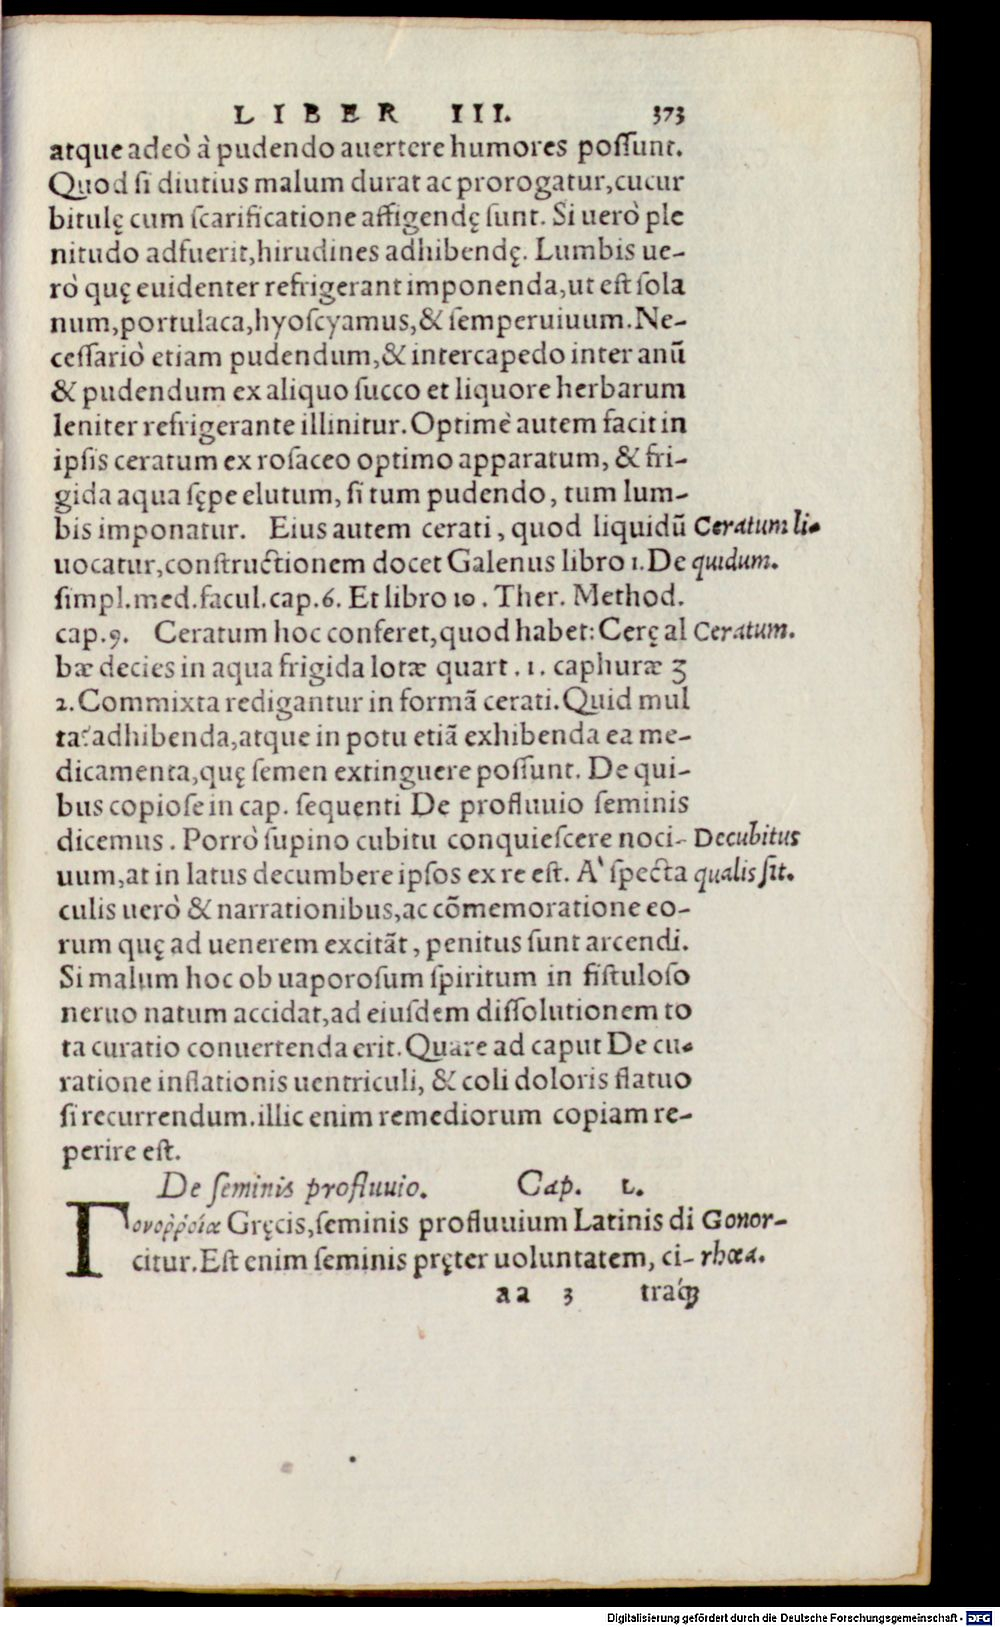 LIBER III. 373
atque adeò à pudendo auertere humores possunt.
Quod si diutius malum durat ac prorogatur, cucur
bitulę cum scarificatione affigendę sunt. Si uerò ple
nitudo adfuerit, hirudines adhibendę. Lumbis ue-
rò quę euidenter refrigerant imponenda, ut est sola
num, portulaca, hyoscyamus, & semperuiuum. Ne-
cessariò etiam pudendum, & intercapedo inter anũ
& pudendum ex aliquo succo et liquore herbarum
leniter refrigerante illinitur. Optimè autem facit in
ipsis ceratum ex rosaceo optimo apparatum, & fri-
gida aqua sępe elutum, si tum pudendo, tum lum-
bis imponatur. Eius autem cerati, quod liquidũ Ceratum li-
uocatur, constructionem docet Galenus libro 1. De quidum.
simpl. med. facul. cap. 6. Et libro 10. Ther. Method.
cap. 9. Ceratum hoc conferet, quod habet: Cerę al Ceratum.
bæ decies in aqua frigida lotæ quart. 1. caphuræ ʒ
2. Commixta redigantur in formã cerati. Quid mul
ta? adhibenda, atque in potu etiã exhibenda ea me-
dicamenta, quę semen extinguere possunt. De qui-
bus copiose in cap. sequenti De profluuio seminis
dicemus. Porrò supino cubitu conquiescere noci- Decubitus
uum, at in latus decumbere ipsos ex re est. A' specta qualis sit.
culis uerò & narrationibus, ac cõmemoratione eo-
rum quę ad uenerem excitãt, penitus sunt arcendi.
Si malum hoc ob uaporosum spiritum in fistuloso
neruo natum accidat, ad eiusdem dissolutionem to
ta curatio conuertenda erit. Quare ad caput De cu-
ratione inflationis uentriculi, & coli doloris flatuo
si recurrendum. illic enim remediorum copiam re-
perire est.
De seminis profluuio. Cap. L.
Γονοῤῥοία Gręcis, seminis profluuium Latinis di Gonor-
citur. Est enim seminis pręter uoluntatem, ci- rhœa.
aa 3 traq́ꝫ
Digitalisierung gefördert durch die Deutsche Forschungsgemeinschaft - DFG